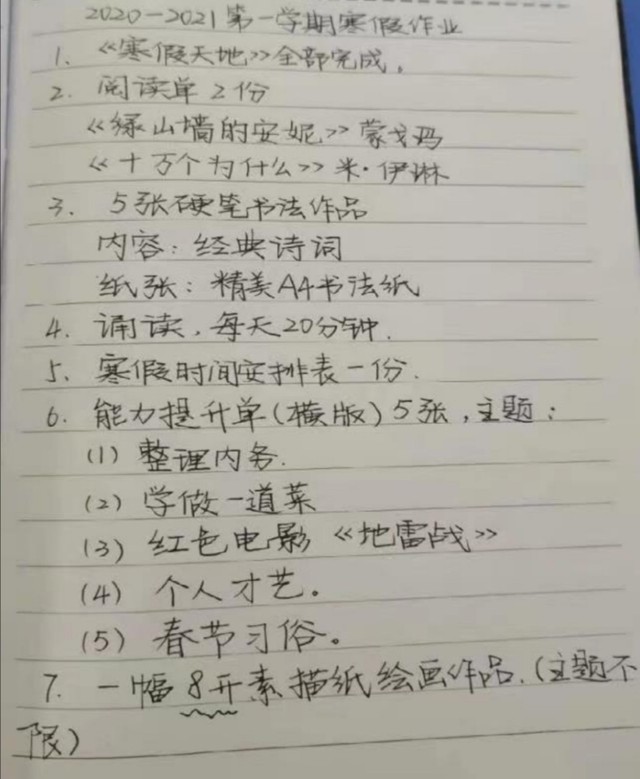 2020-2021第一学期寒假作业
1. 《寒假天地》全部完成.
2. 阅读单2份
《绿山墙的安妮》蒙戈玛
《十万个为什么》米·伊琳
3. 5张硬笔书法作品
内容：经典诗词
纸张：精美A4书法纸
4. 诵读，每天20分钟.
5. 寒假时间安排表一份.
6. 能力提升单(横版)5张，主题：
(1) 整理内务.
(2) 学做一道菜
(3) 红色电影《地雷战》
(4) 个人才艺。
(5) 春节习俗。
7. 一幅8开素描纸绘画作品.(主题不
限)